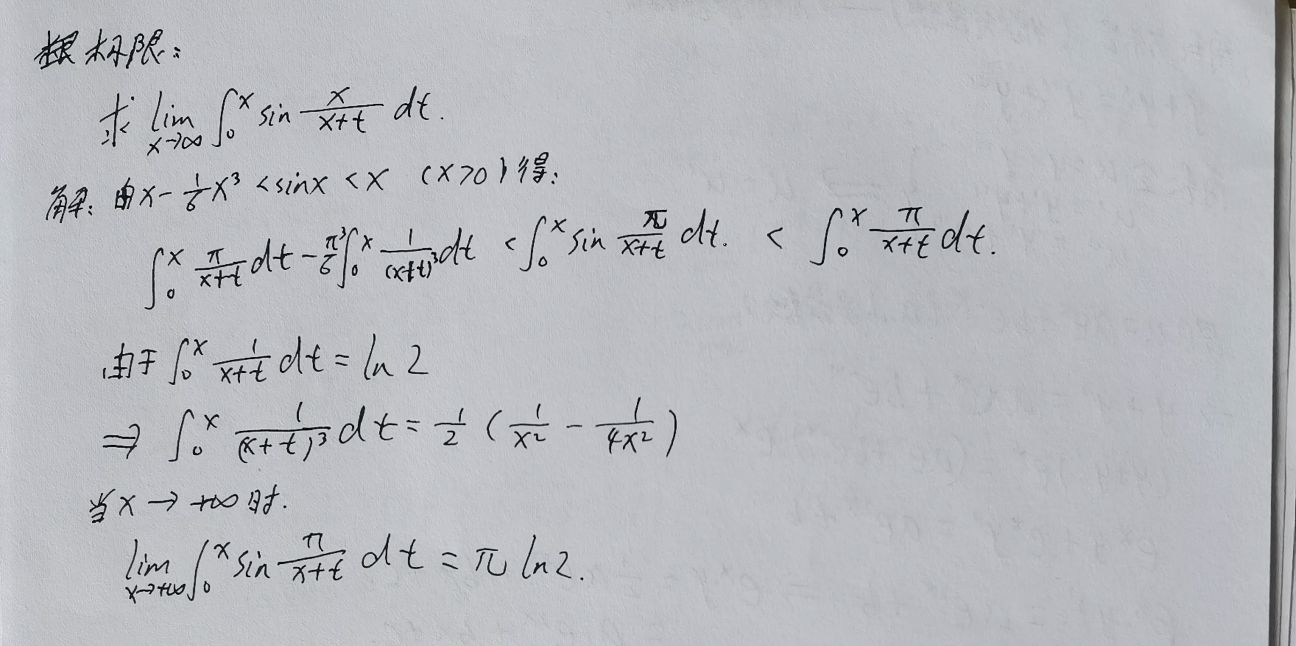 极限:
求 lim_{x→∞} ∫_0^x sin \frac{x}{x+t} dt.
解: 由 x - \frac{1}{6}x^3 < sinx < x (x>0) 得:
∫_0^x \frac{π}{x+t} dt - \frac{π^3}{6} ∫_0^x \frac{1}{(x+t)^3} dt < ∫_0^x sin \frac{π}{x+t} dt. < ∫_0^x \frac{π}{x+t} dt.
由于 ∫_0^x \frac{1}{x+t} dt = ln 2
⇒ ∫_0^x \frac{1}{(x+t)^3} dt = \frac{1}{2} ( \frac{1}{x^2} - \frac{1}{4x^2} )
当 x → +∞ 时.
lim_{x→+∞} ∫_0^x sin \frac{π}{x+t} dt = π ln2.